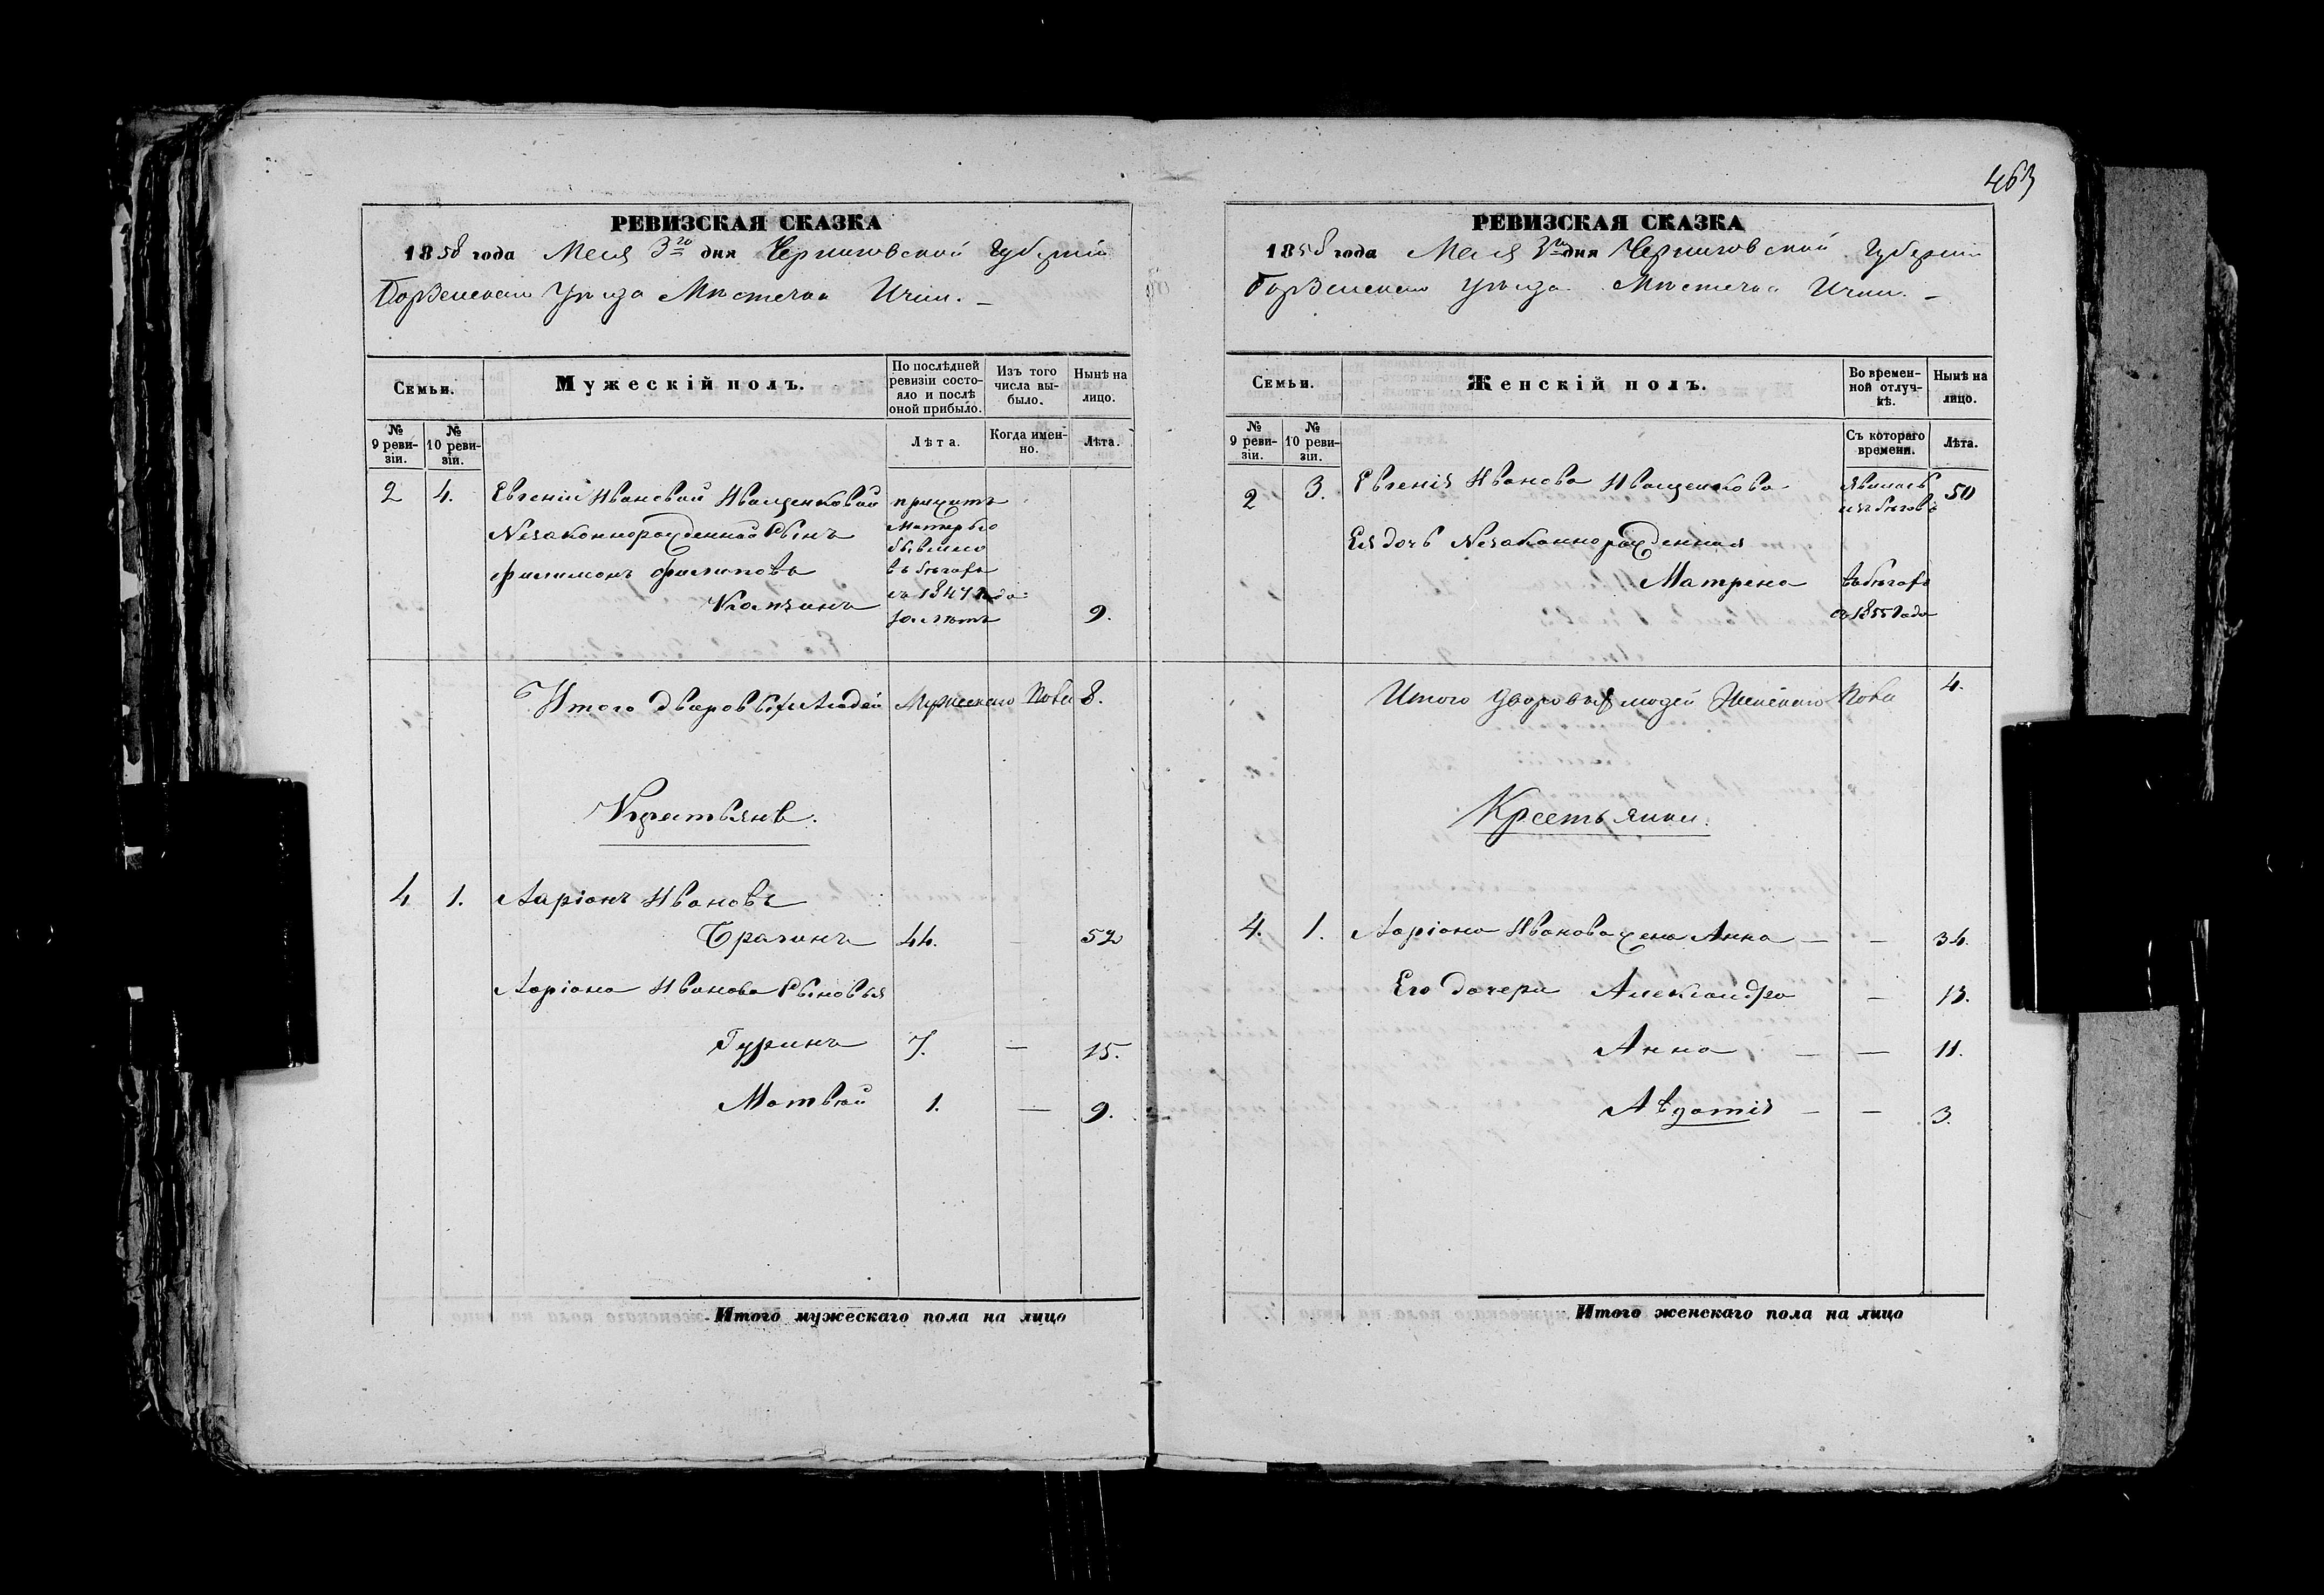 463
РЕВИЗСКАЯ СКАЗКА
1858 года Мая 3го дня Черниговской Губерніи
Борзенскаго Уѣзда Мѣстечка Ични. –
Семьи.
Мужескій полъ.
По послѣдней ревизіи состо-
яло и послѣ
оной прибыло.
Изъ того
числа вы-
было.
Нынѣ на
лицо.
№
9 реви-
зіи.
№
10 реви-
зіи.
Лѣта.
Когда имен-
но.
Лѣта.
2 4. Евгеніи Ивановой Иващенковой
Незаконнорожденной Сынъ
Филимонъ Филиповъ
прижитъ
Матерью
бывшею
въ бѣгахъ
съ 1847 года
9.
Итого дворовыхъ Людей Мужескаго Пола 8.
Крестьяне.
4 1. Ларіонъ Ивановъ
Брагинъ 44. – 52
Ларіона Иванова Сыновья
Гуринъ 7. – 15.
Матвѣй 1. – 9.
Итого мужескаго пола на лицо
РЕВИЗСКАЯ СКАЗКА
1858 года Мая 3го дня Черниговской Губерніи
Борзенскаго Уѣзда Мѣстечка Ични. –
Семьи.
Женскій полъ.
Во времен-
ной отлуч-
кѣ.
Нынѣ на
лицо.
№
9 реви-
зіи.
№
10 реви-
зіи.
Съ котораго
времени.
Лѣта.
2 3. Евгенія Иванова Иващенкова
явилась
изъ бѣговъ
50
Ея дочь Незаконнорожденная
Матрена въ бѣгахъ
съ 1855 года
Итого дворовыхъ людей Женскаго Пола 4.
Крестьянки.
4. 1. Ларіона Иванова жена Анна – – 34.
Его дочери Александра – 13.
Анна – – 11.
Авдотія – – 3.
Итого женскаго пола на лицо